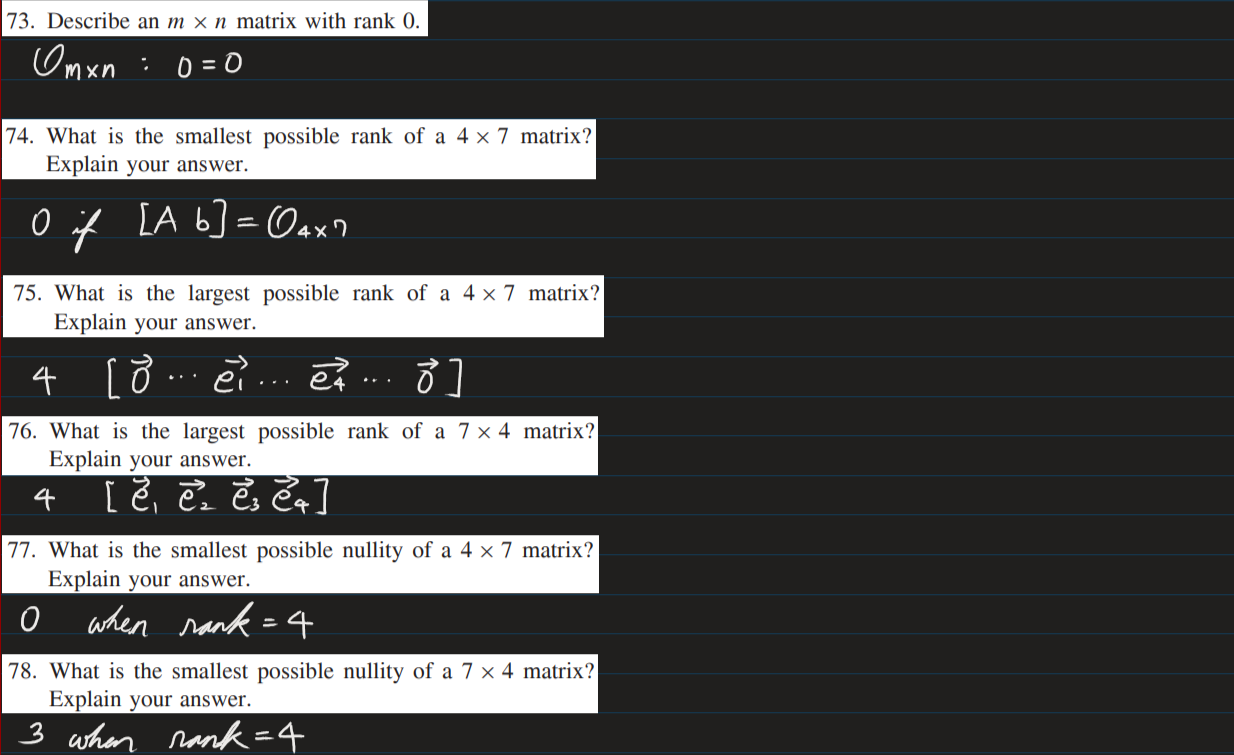 73. Describe an m × n matrix with rank 0.
O m×n : 0 = 0
74. What is the smallest possible rank of a 4 × 7 matrix?
Explain your answer.
0 if [A b] = O 4×7
75. What is the largest possible rank of a 4 × 7 matrix?
Explain your answer.
4 [0⃗ ... e⃗₁ ... e⃗₄ ... 0⃗]
76. What is the largest possible rank of a 7 × 4 matrix?
Explain your answer.
4 [e⃗₁ e⃗₂ e⃗₃ e⃗₄]
77. What is the smallest possible nullity of a 4 × 7 matrix?
Explain your answer.
0 when rank = 4
78. What is the smallest possible nullity of a 7 × 4 matrix?
Explain your answer.
3 when rank = 4